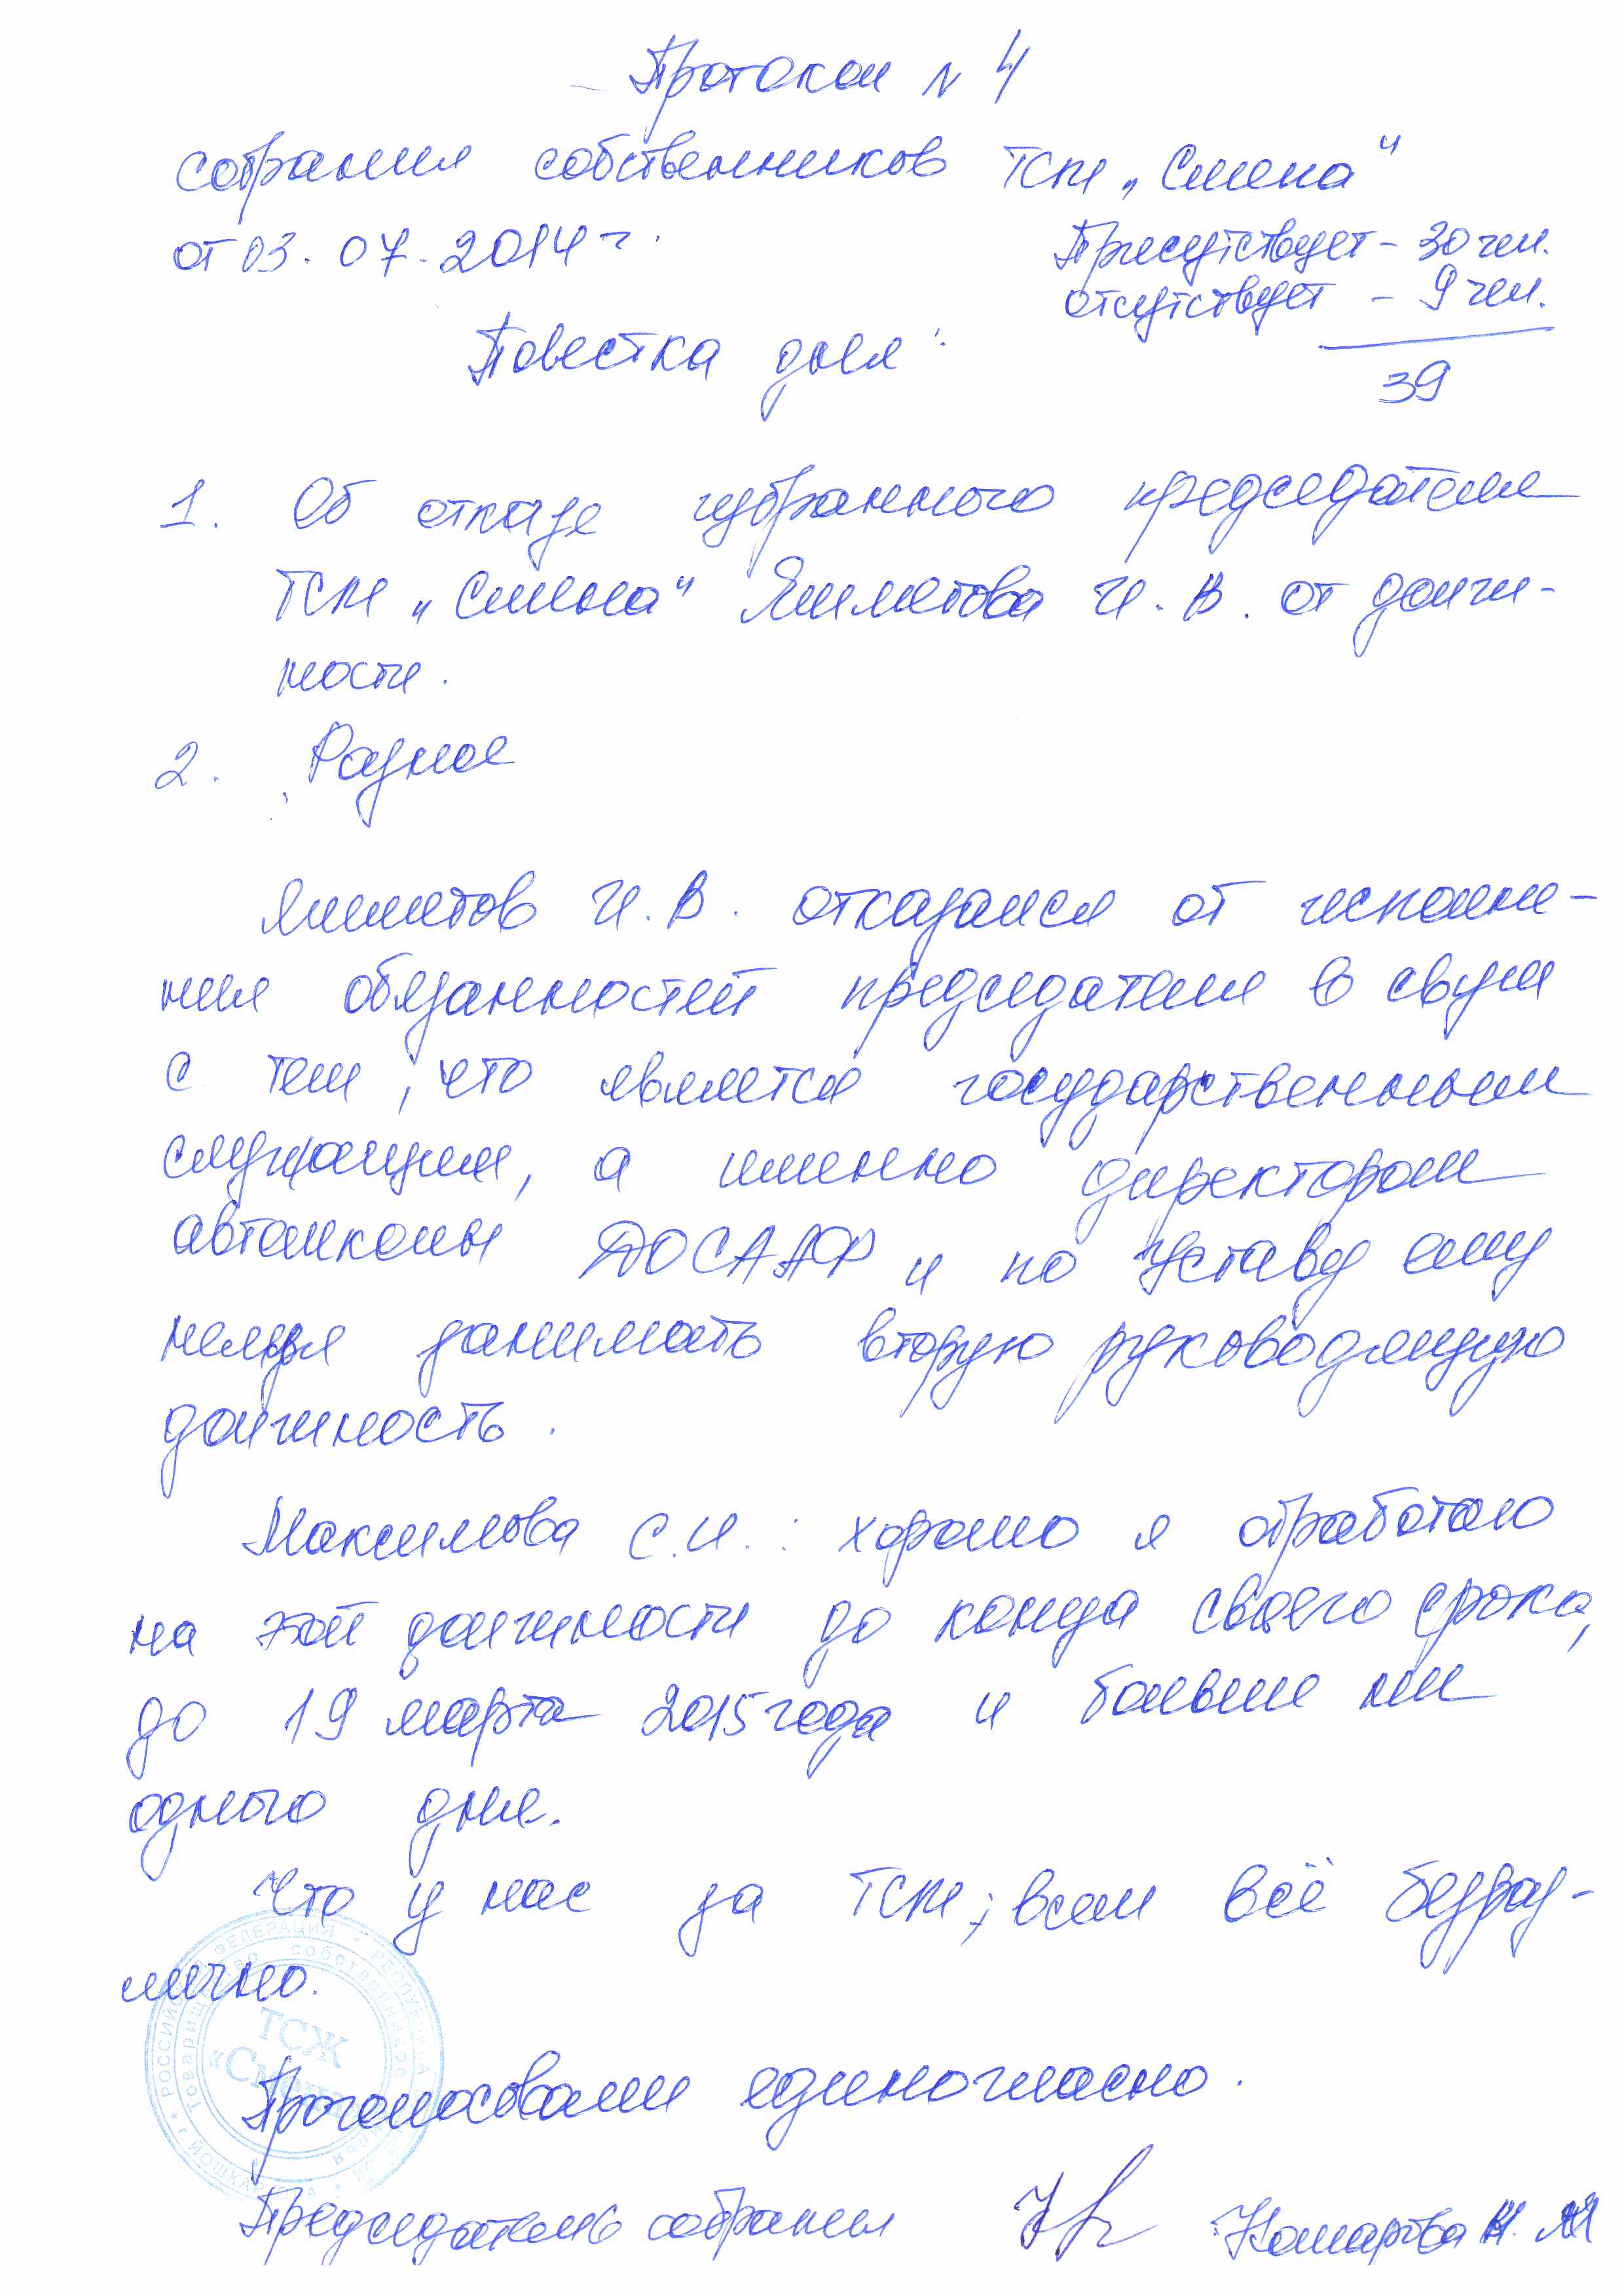 Протокол N 4
собрания собственников ТСЖ „Смена"
от 03.07.2014 г.
Присутствует - 30 чел.
отсутствует - 9 чел.
39
Повестка дня:
1. Об отказе избранного председателя
ТСЖ „Смена" Яшметова И.В. от долж-
ности.
2. Разное
Яшметов И.В. отказался от исполне-
ния обязанностей председателя в связи
с тем, что является государственным
служащим, а именно директором
автошколы ДОСААФ и по Уставу ему
нельзя занимать вторую руководящую
должность.
Максимова С.И.: хорошо я отработаю
на этой должности до конца своего срока,
до 19 марта 2015 года и больше ни
одного дня.
Что у нас за ТСЖ; всем всё безраз-
лично.
Проголосовали единогласно.
Председатель собрания
РОССИЙСКАЯ ФЕДЕРАЦИЯ * РЕСПУБЛИКА
* г. ЙОШКАР-ОЛА
Товарищество собственников
ТСЖ
«Смена»